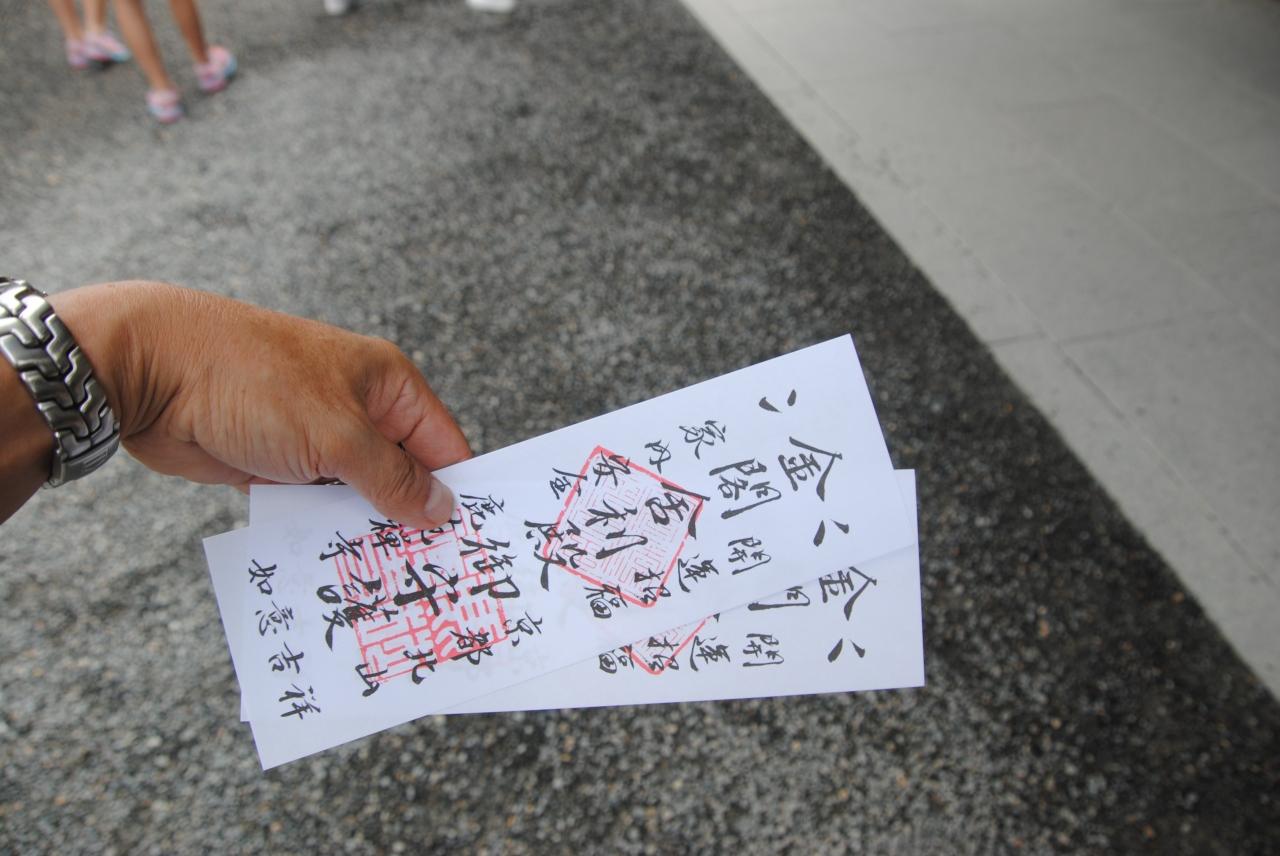 開運招福
金閣
舎利殿
家内安全
京都北山
御守護
鹿苑禅寺
如意吉祥
開運招
金